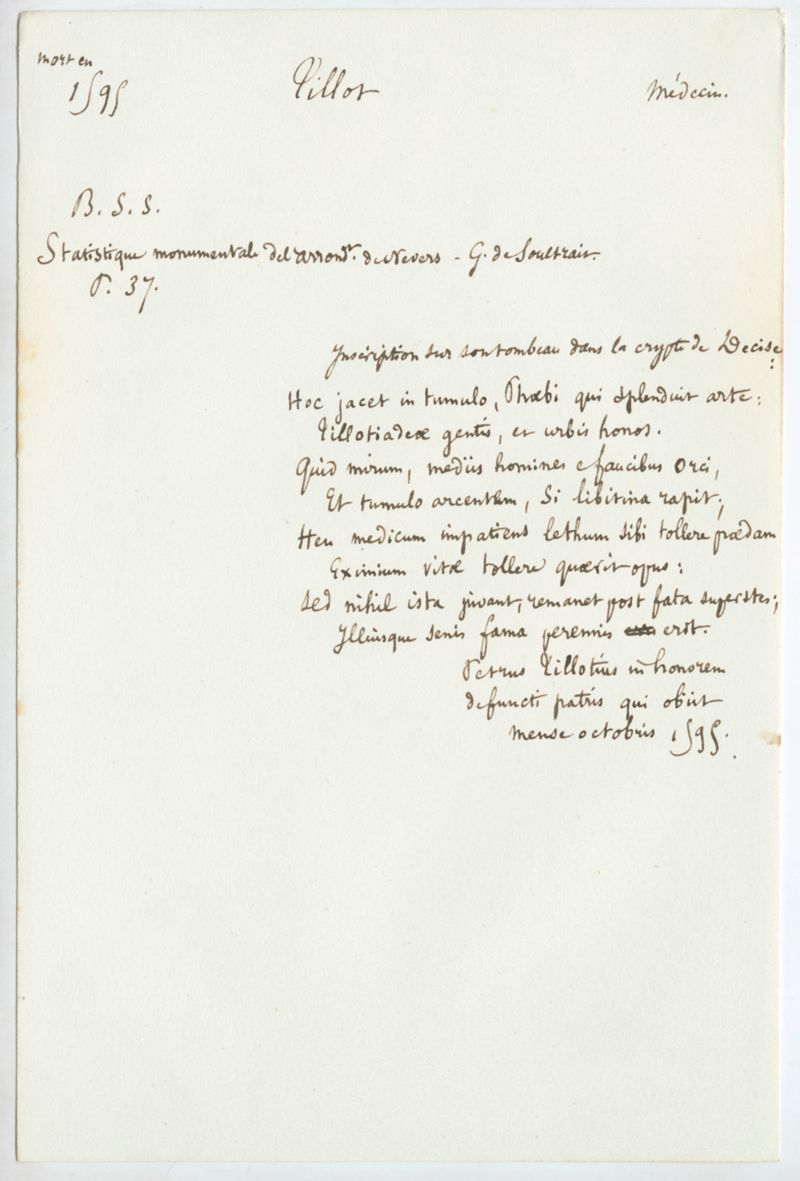 mort en
1595
Tillot
Médecin.
B. S. S.
Statistique monumentale de l'arrondt. de Nevers - G. de Soultrait.
P. 37.
Inscription sur son tombeau dans la crypte de Decise :
Hoc jacet in tumulo, Phœbi qui splenduit arte :
Tillotiadeæ gentis, et urbis honos.
Quid mirum, mediis homines e faucibus Orci,
Et tumulo arcentem, si libitina rapit ;
Heu medicum impatiens lethum sibi tollere prædam
Eximium vitæ tollere quærit opus :
Sed nihil ista juvant, remanet post fata superstes ;
Illiusque senis fama perennis erit.
Petrus Tillotius in honorem
defuncti patris qui obiit
mense octobris 1595.